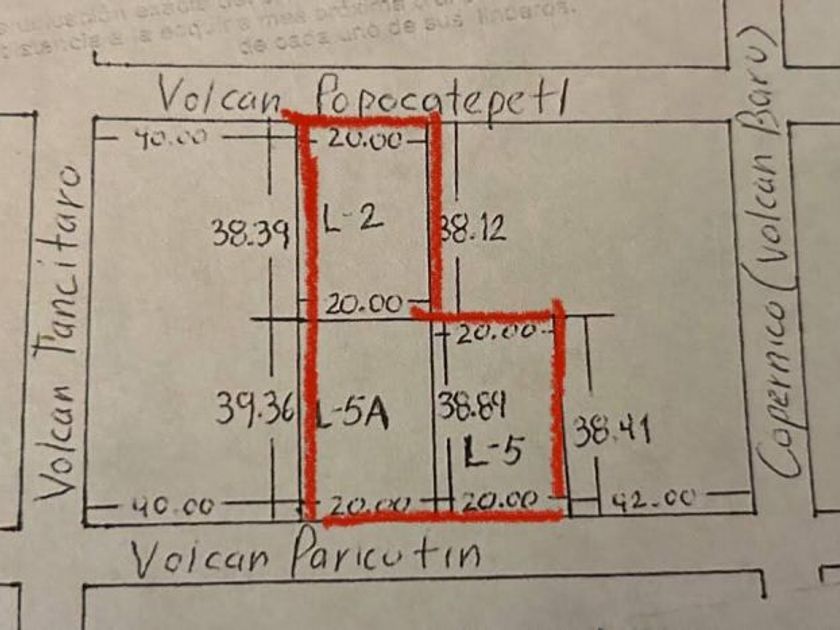 distancia a la esquina mas próxima
de cada uno de sus linderos.
Volcan Popocatepetl
40.00
20.00
Volcan Tancitaro
38.39
L-2
38.12
Copernico (volcan Baru)
20.00
20.00
39.36
L-5A
38.84
38.41
L-5
40.00
20.00
20.00
42.00
Volcan Paricutin